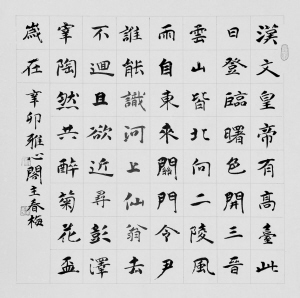 漢文皇帝有高臺此
日登臨曙色開三晉
雲山皆北向二陵風
雨自東來關門令尹
誰能識河上仙翁去
不迴且欲近尋彭澤
宰陶然共醉菊花盃
歲在辛卯雅心閣主春梅